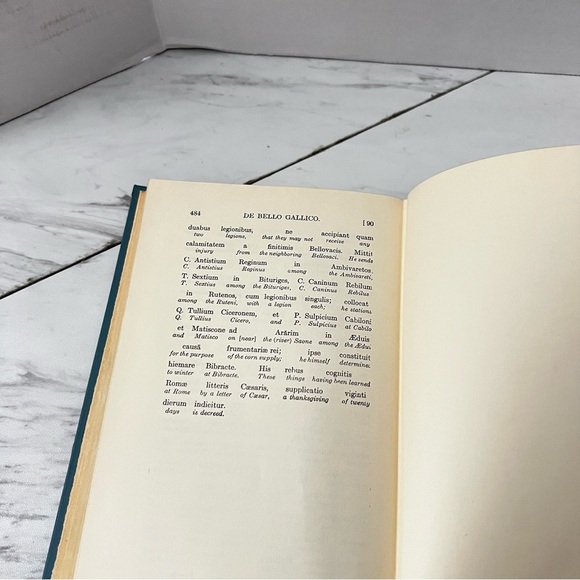 484 DE BELLO GALLICO. [90
duabus legionibus, ne accipiant quam
two legions, that they may not receive any
calamitatem a finitimis Bellovacis. Mittit
injury from the neighboring Bellovaci. He sends
C. Antistium Reginum in Ambivaretos,
C. Antistius Reginus among the Ambivareti,
T. Sextium in Bituriges, C. Caninum Rebilum
T. Sextius among the Bituriges, C. Caninus Rebilus
in Rutenos, cum legionibus singulis; collocat
among the Ruteni, with a legion each; he stations
Q. Tullium Ciceronem, et P. Sulpicium Cabiloni
Q. Tullius Cicero, and P. Sulpicius at Cabilo
et Matiscone ad Arărim in Æduis
and Matisco on [near] the (river) Saone among the Ædui
causā frumentariæ rei; ipse constituit
for the purpose of the corn supply; he himself determines
hiemare Bibracte. His rebus cognitis
to winter at Bibracte. These things having been learned
Romæ litteris Cæsaris, supplicatio viginti
at Rome by a letter of Cæsar, a thanksgiving of twenty
dierum indicitur.
days is decreed.